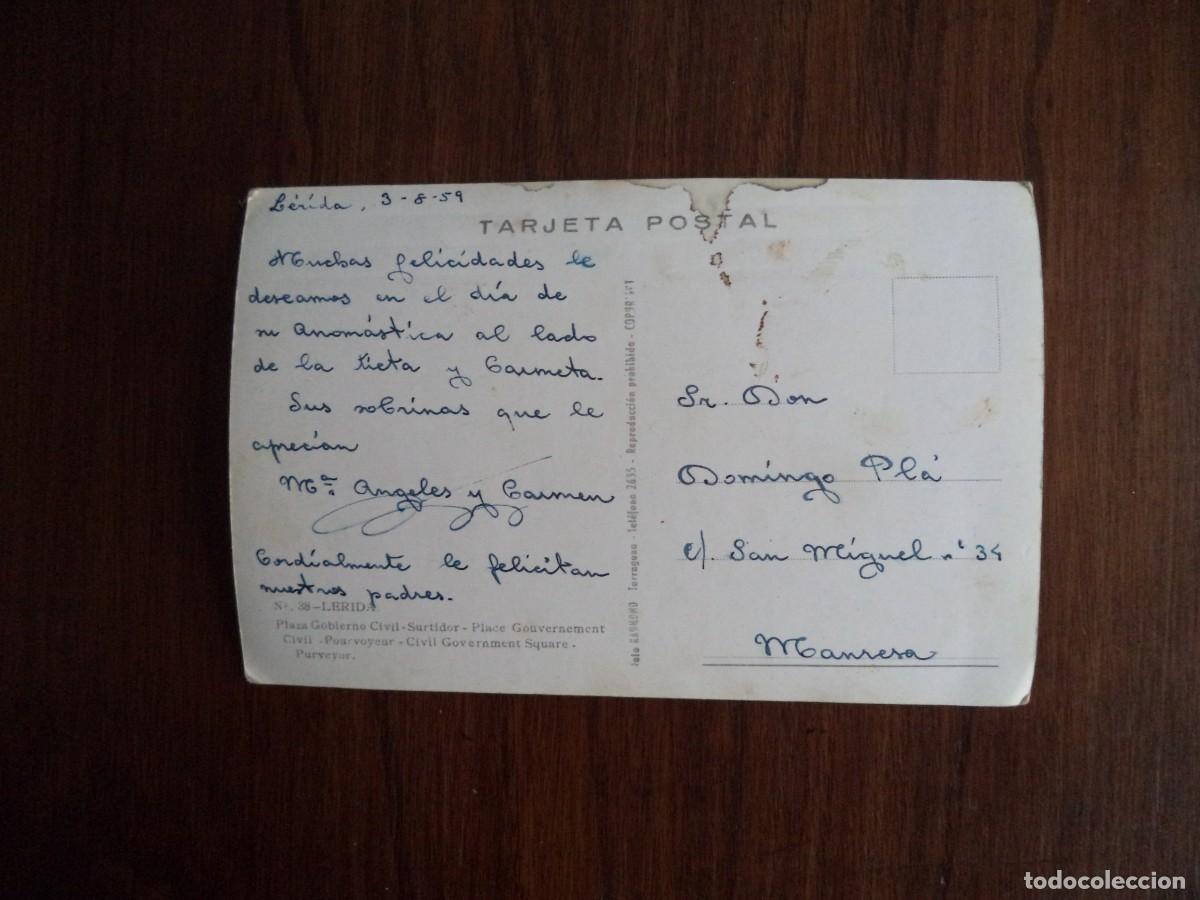 Lérida, 3-8-59
TARJETA POSTAL
Muchas felicidades le
deseamos en el día de
su Anomástica al lado
de la tieta y Carmeta.
Sus sobrinas que le
aprecian
Mª Angeles y Carmen
Cordialmente le felicitan
nuestros padres.
Nº. 38-LERIDA
Plaza Gobierno Civil-Surtidor - Place Gouvernement
Civil - Pourvoyeur - Civil Government Square -
Purveyor.
Foto RAYMOND Tarragona - Teléfono 2635 - Reproducción prohibida -
Sr. Don
Domingo Plá
c/. San Miguel nº 34
Manresa
todocoleccion